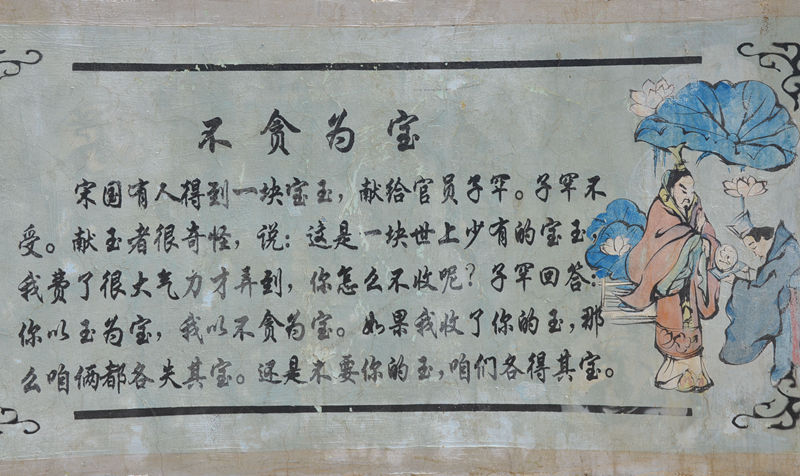 不贪为宝
宋国有人得到一块宝玉，献给官员子罕。子罕不
受。献玉者很奇怪，说：这是一块世上少有的宝玉
我费了很大气力才弄到，你怎么不收呢？子罕回答：
你以玉为宝，我以不贪为宝。如果我收了你的玉，那
么咱俩都各失其宝。还是不要你的玉，咱们各得其宝。